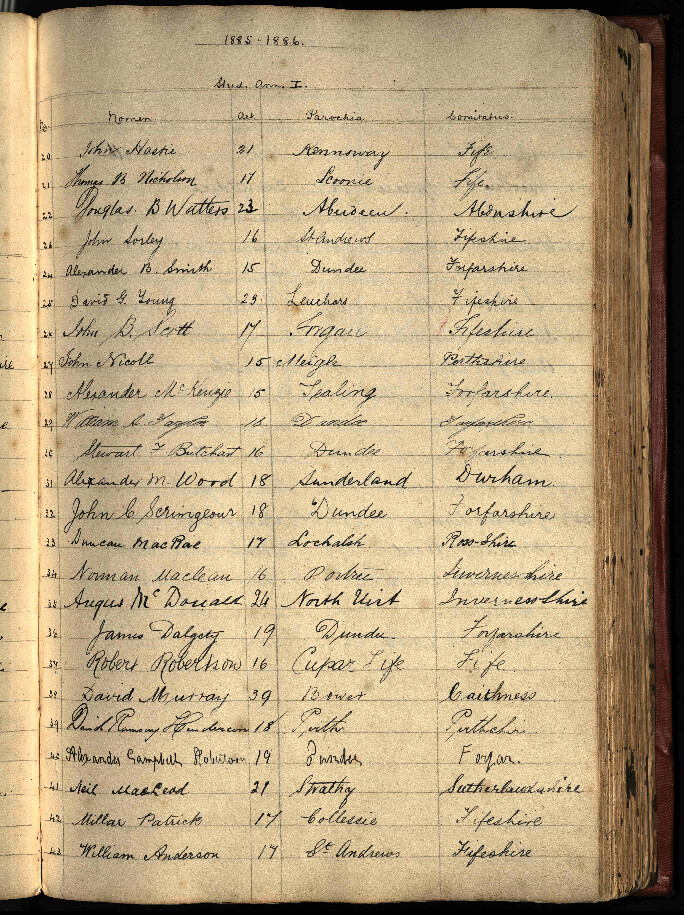 1885-1886.
Stud. Ann. I.
No. Nomen Aet. Parochia Comitatus.
20 John Hastie 21 Kennoway Fife
21 Thomas B Nicholson 17 Scoonie Fife.
22 Douglas. B Watters 23 Aberdeen. Abdnshire
23 John Sorley 16 St Andrews Fifeshire
24 Alexander B. Smith 15 Dundee Forfarshire
25 David G. Young 23. Leuchars Fifeshire
26 John B. Scott 17 Forgan Fifeshire
27 John Nicoll 15 Meigle Perthshire
28 Alexander McKenzie 15 Tealing Forfarshire.
29 William S. Taylor 18 Dundee
30 Stewart F Butchart 16 Dundee Forfarshire
31 Alexander M. Wood 18 Sunderland Durham.
32 John C Scrimgeour 18 Dundee Forfarshire
33 Duncan MacRae 17 Lochalsh Ross-shire
34 Norman Maclean 16 Portree Inverness shire
35 Angus McDonald 24 North Uist Inverness shire
36 James Dalgety 19 Dundee. Forfarshire
37 Robert Robertson 16 Cupar Fife Fife
38 David Murray 39 Bower Caithness
39 David Ramsay Henderson 18 Perth Perthshire
40 Alexander Campbell Robertson 19 Dundee Forfar.
41 Neil MacLeod 21 Strathy Sutherlandshire
42 Millar Patrick 17 Collessie Fifeshire
43 William Anderson 17 St Andrews Fifeshire